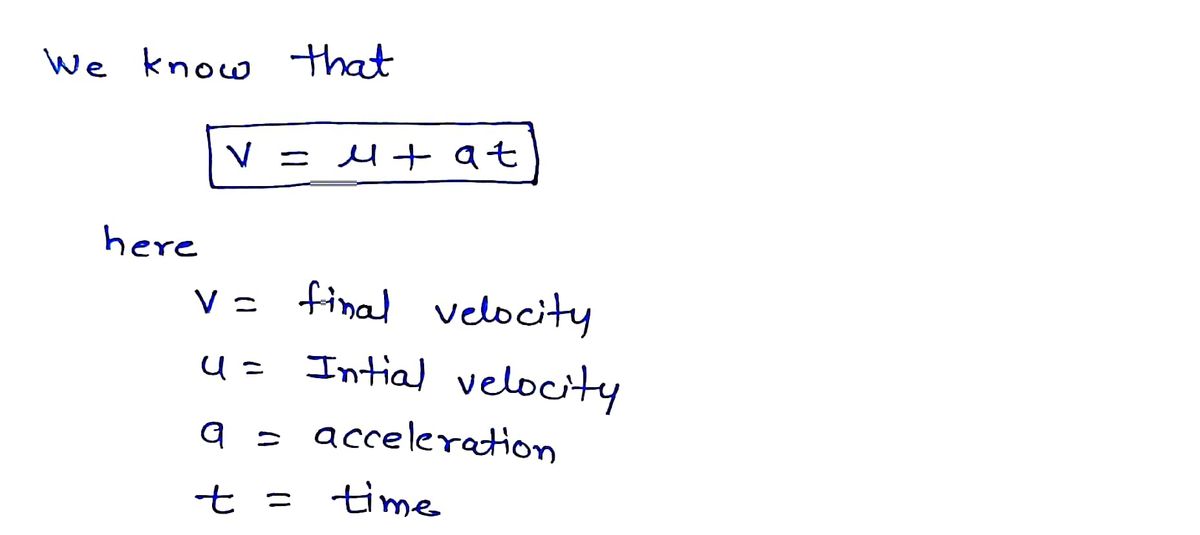 We know that
v = u + at
here
v = final velocity
u = Intial velocity
a = acceleration
t = time